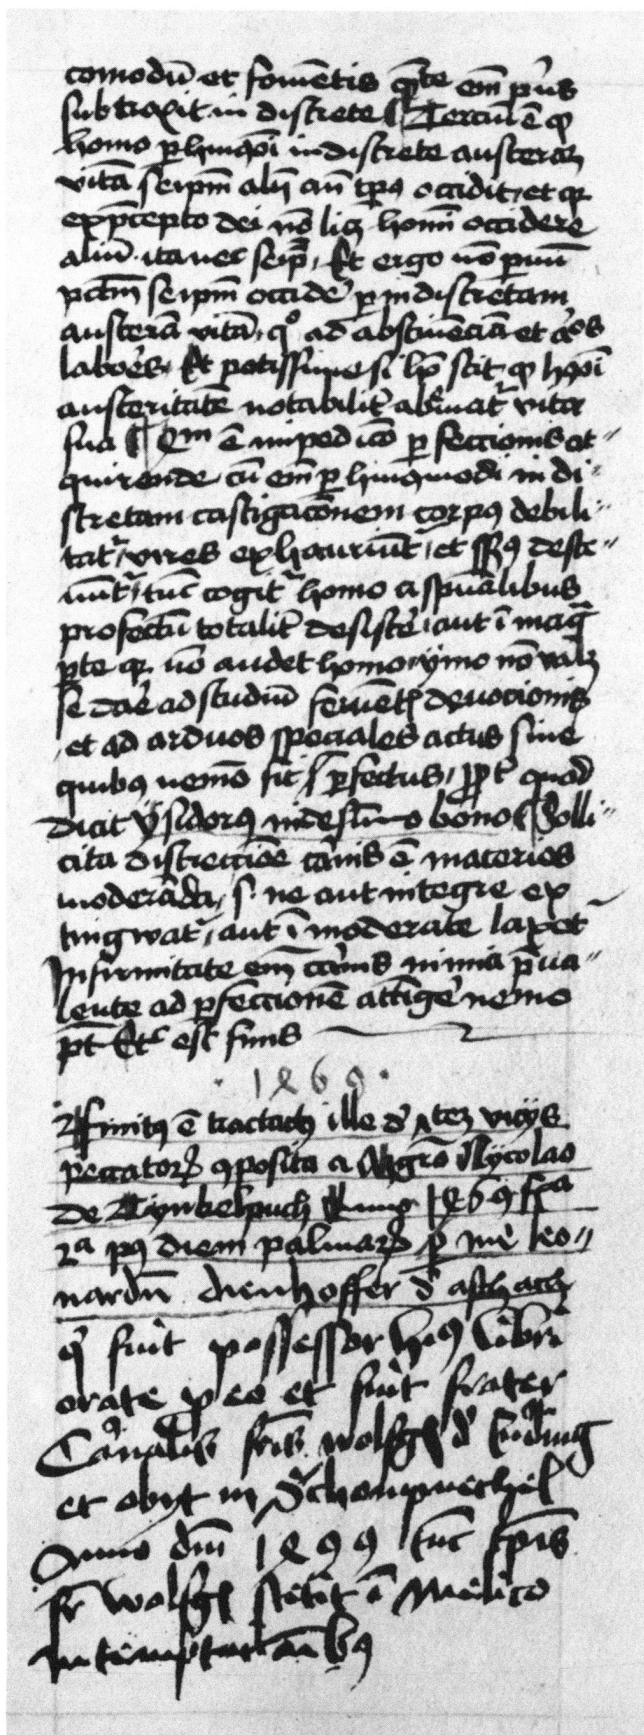 comodū et fomētis qͣte em̄ pͥus
subtraxit in discrete ¶ Terciū ē qꝫ
homo ꝑ hmōi indiscrete austerā
vitā seip̄m añ tp̄s occidit et qꝛ
ex p̄cepto dei nō licꝫ homī occidere
aliū ita nec seip̄m Et ergo nō paruū
pctm̄ seip̄m occidē ꝑ indiscretam
austerā vitā qͦ ad abstinēciā et
labores Et potissime si hō scit qꝫ hmōi
austeritatē notabilit abbreuiat vitā
sua ¶ ē impedico ꝑfeccionis ac-
quirende cū em̄ ꝑ huiusmodi indi-
scretam castigacōnem corpꝰ debili-
tat vires exhauriūt et defic-
iūt tūc cogit homo a spūalibus
profectū totalit desistē aut ī magͣ
ꝑte qꝛ nō audet homo ymo nō valꝫ
se dare ad studiū feruētꝭ deuocionis
et ad arduos speciales actus sine
quibꝰ nemo fit ꝑfectus quod
dicit ysidorꝰ in de sūmo bono ¶ Solli-
cita discrecciōe cͣnis ē materies
moderāda s. ne aut integre ex
tingwat aut īmoderate laxet
Infirmitate em̄ carnis nimia p̄ua-
lente ad ꝑfeccionē attīgē nemo
pt̄ Etc est finis
1869
Finitꝰ ē tractatꝰ ille de vicijs
peccatorꝝ ꝯposita a Mgrō Nycolao
de Dynkelspuch Anno 1869 fͥa
2ͣ pꝰ diem palmarꝝ ꝑ me leo-
nardū dienhoffer de aschach
qͥ fuit possessor hꝰ libri
orate ꝓ eo et fuit frater
Carnalis frīs wolfgꝭ de
et obyt in
Anno dnī 1899 tūc tp̄is
fr̄ wolfgꝭ stetit ī Mellico
In